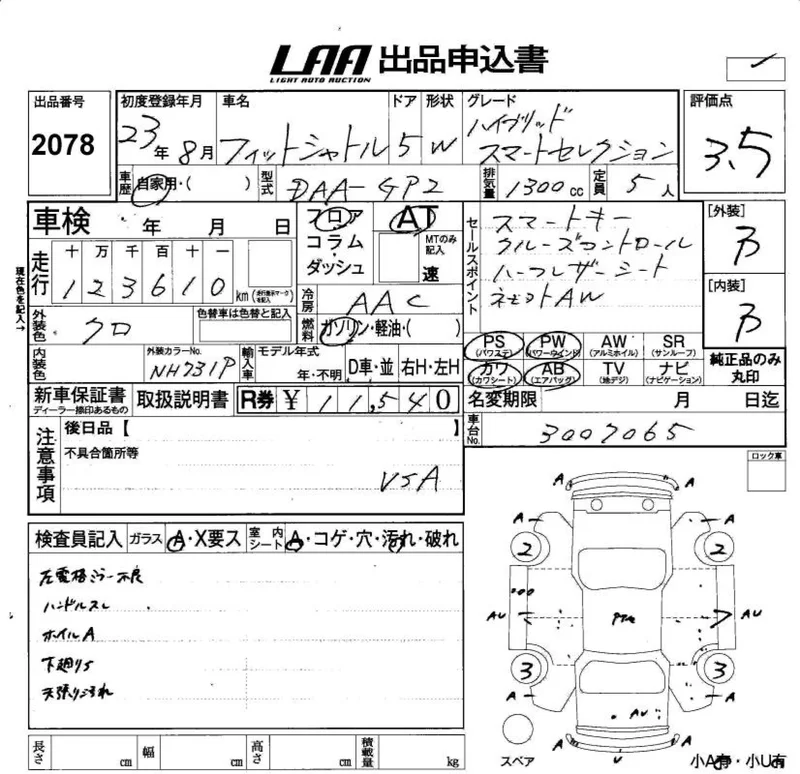 LAA 出品申込書
LIGHT AUTO AUCTION
出品番号
2078
初度登録年月
23年 8月
車名
フィットシャトル
ドア
5
形状
W
グレード
ハイブリッド
スマートセレクション
評価点
3.5
車歴
自家用・( )
型式
DAA-GP2
排気量
1300cc
定員
5人
車検 年 月 日
フロア
コラム・
ダッシュ
AT
MTのみ記入
速
セールスポイント
スマートキー
クルーズコントロール
ハーフレザーシート
[外装]
[内装]
現在色を記入→
走行
十 万 千 百 十 一
1 2 3 6 1 0 km
(走行表示マークを記入)
冷房
AAC
燃料
ガソリン・軽油・( )
外装色
クロ
色替車は色替と記入
内装色
外装カラーNo.
NH731P
輸入車
モデル年式
年・不明
D車・並
右H・左H
PS
(パワステ)
PW
(パワーウインド)
AW
(アルミホイル)
SR
(サンルーフ)
カワ
(カワシート)
AB
(エアバッグ)
TV
(地デジ)
ナビ
(ナビゲーション)
純正品のみ
丸印
新車保証書
ディーラー捺印あるもの
取扱説明書
R券 ¥ 11,540
名変期限 月 日迄
車台No.
3007065
注意事項
後日品【 】
不具合箇所等
VSA
ロック車
検査員記入
ガラス
A・X要ス
室内シート
A・コゲ・穴・汚れ・破れ
左電格ミラー不良
ハンドルスレ
ホイルA
下廻りS
天張りヨゴれ
A A
A A
2 2
AU AU
3 3
A A
AU
A U A
スペア
小A有・小U有
長さ cm
幅 cm
高さ cm
積載量 kg